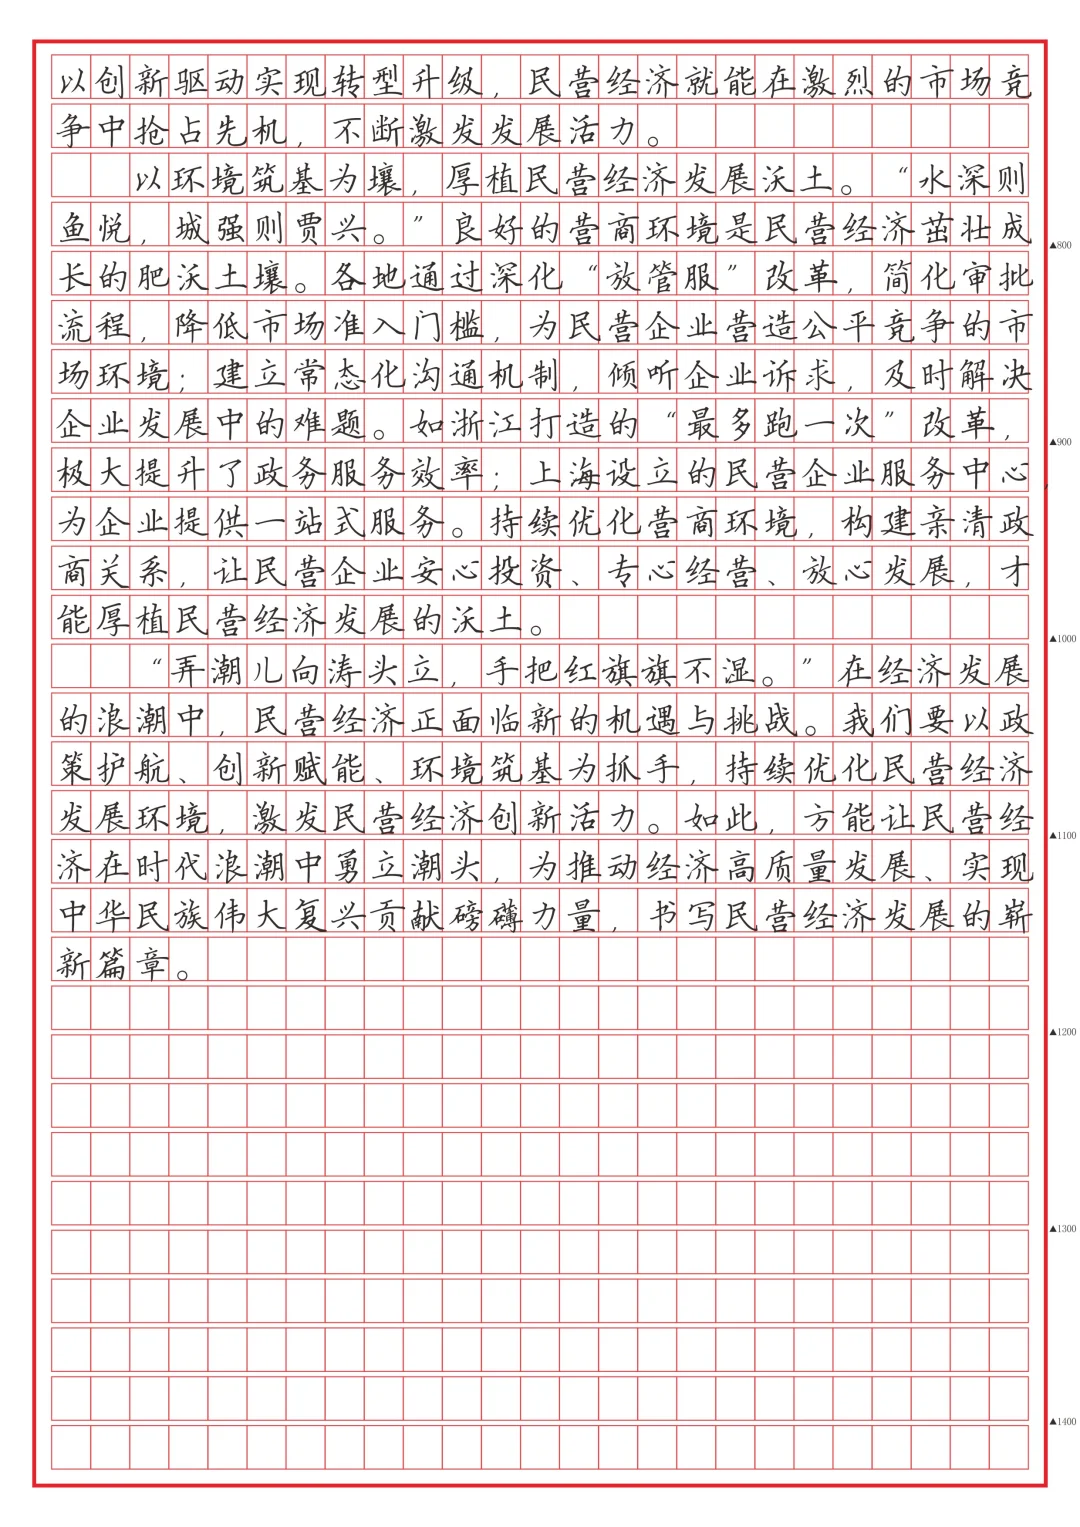 以创新驱动实现转型升级，民营经济就能在激烈的市场竞
争中抢占先机，不断激发发展活力。
以环境筑基为壤，厚植民营经济发展沃土。“水深则
鱼悦，城强则贾兴。”良好的营商环境是民营经济茁壮成
▲800
长的肥沃土壤。各地通过深化“放管服”改革，简化审批
流程，降低市场准入门槛，为民营企业营造公平竞争的市
场环境；建立常态化沟通机制，倾听企业诉求，及时解决
企业发展中的难题。如浙江打造的“最多跑一次”改革，
▲900
极大提升了政务服务效率；上海设立的民营企业服务中心，
为企业提供一站式服务。持续优化营商环境，构建亲清政
商关系，让民营企业安心投资、专心经营、放心发展，才
能厚植民营经济发展的沃土。
▲1000
“弄潮儿向涛头立，手把红旗旗不湿。”在经济发展
的浪潮中，民营经济正面临新的机遇与挑战。我们要以政
策护航、创新赋能、环境筑基为抓手，持续优化民营经济
发展环境，激发民营经济创新活力。如此，方能让民营经
▲1100
济在时代浪潮中勇立潮头，为推动经济高质量发展、实现
中华民族伟大复兴贡献磅礴力量，书写民营经济发展的崭
新篇章。
▲1200
▲1300
▲1400